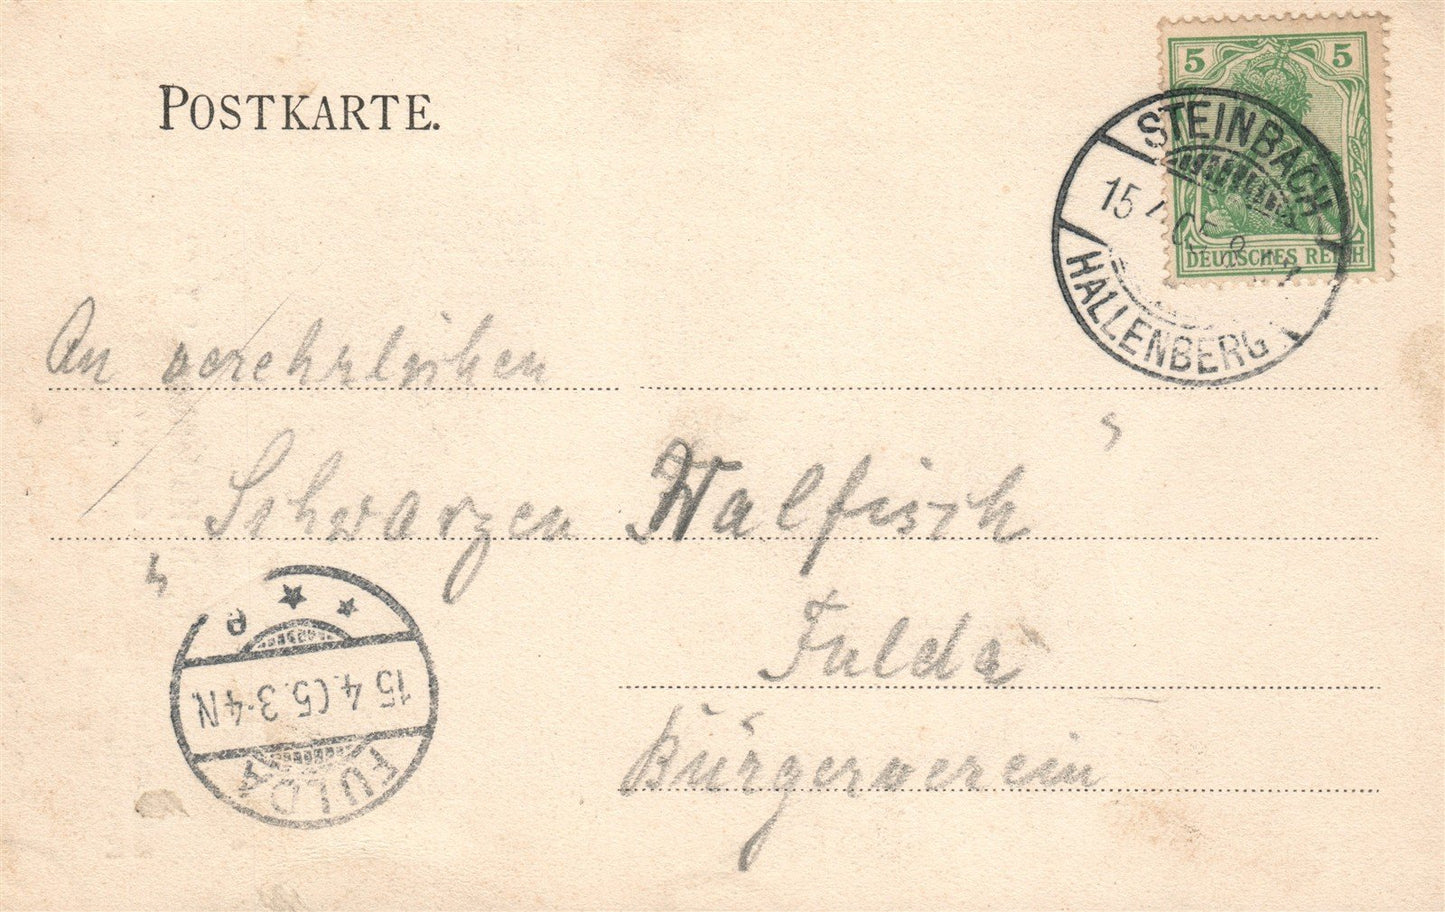 POSTKARTE.
5 5
DEUTSCHES REICH
STEINBACH
15
HALLENBERG
An verehrlichen
„Schwarzen Walfisch“
Fulda
Bürgerverein
15.4.05.3-4N
FULDA